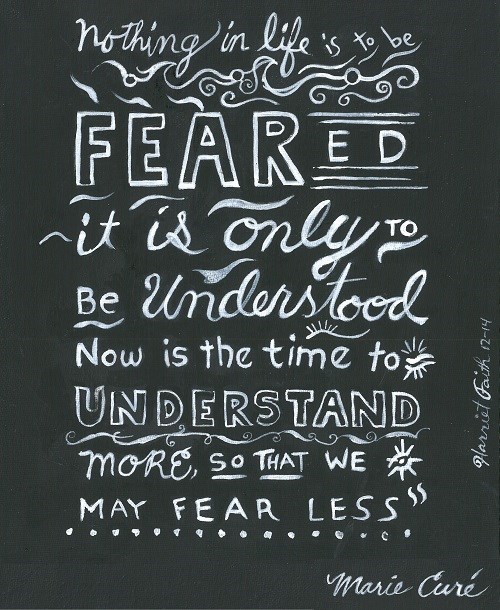 Nothing in life is to be
FEARED
it is only TO
Be Understood
Now is the time to
UNDERSTAND
MORE, SO THAT WE
MAY FEAR LESS"
Marie Curé
Harriet Faith 12-14